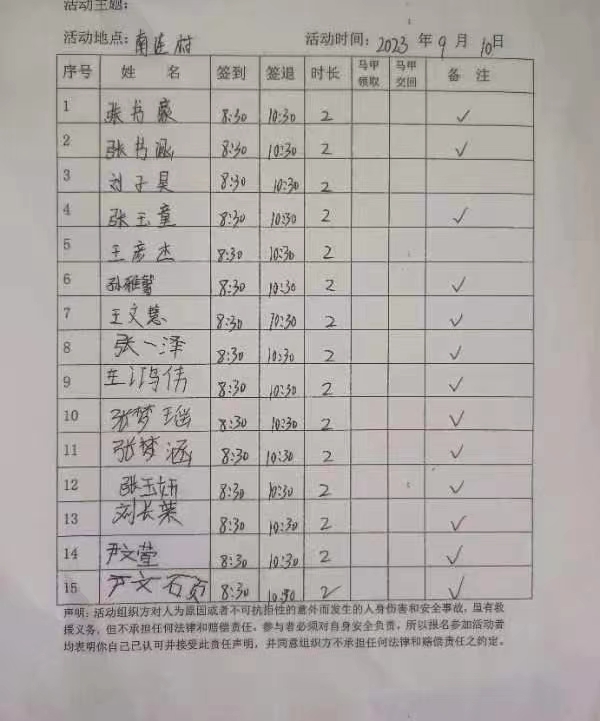 活动主题：
活动地点：南连村 活动时间：2023 年 9 月 10 日
序号 姓 名 签到 签退 时长 马甲领取 马甲交回 备 注
1 张书豪 8:30 10:30 2 ✓
2 张书涵 8:30 10:30 2 ✓
3 刘子昊 8:30 10:30 2
4 张玉童 8:30 10:30 2 ✓
5 王彦杰 8:30 10:30 2
6 孙雅馨 8:30 10:30 2 ✓
7 王文慧 8:30 10:30 2 ✓
8 张一泽 8:30 10:30 2 ✓
9 伟 8:30 10:30 2 ✓
10 张梦瑶 8:30 10:30 2 ✓
11 张梦涵 8:30 10:30 2 ✓
12 张玉妍 8:30 10:30 2 ✓
13 刘长荣 8:30 10:30 2 ✓
14 尹文莹 8:30 10:30 2 ✓
15 尹文硕 8:30 10:30 2 ✓
声明：活动组织方对人为原因或者不可抗拒性的意外而发生的人身伤害和安全事故，虽有救
援义务，但不承担任何法律和赔偿责任。参与者必须对自身安全负责，所以报名参加活动者
均表明你自己已认可并接受此责任声明，并同意组织方不承担任何法律和赔偿责任之约定。